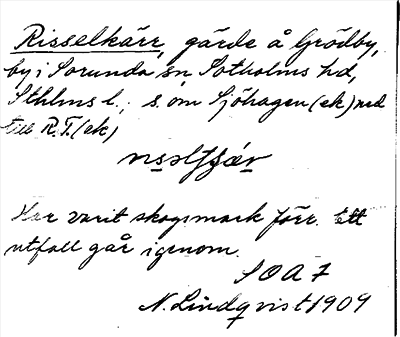 Risselkärr, gärde å Grödby,
by i Sorunda sn, Sotholms hd,
Sthlms l., s. om Sjöhagen (ek) ned
till R.T. (ek)
Här varit skogsmark förr. Ett
utfall går igenom.
SOA 7
N. Lindqvist 1909